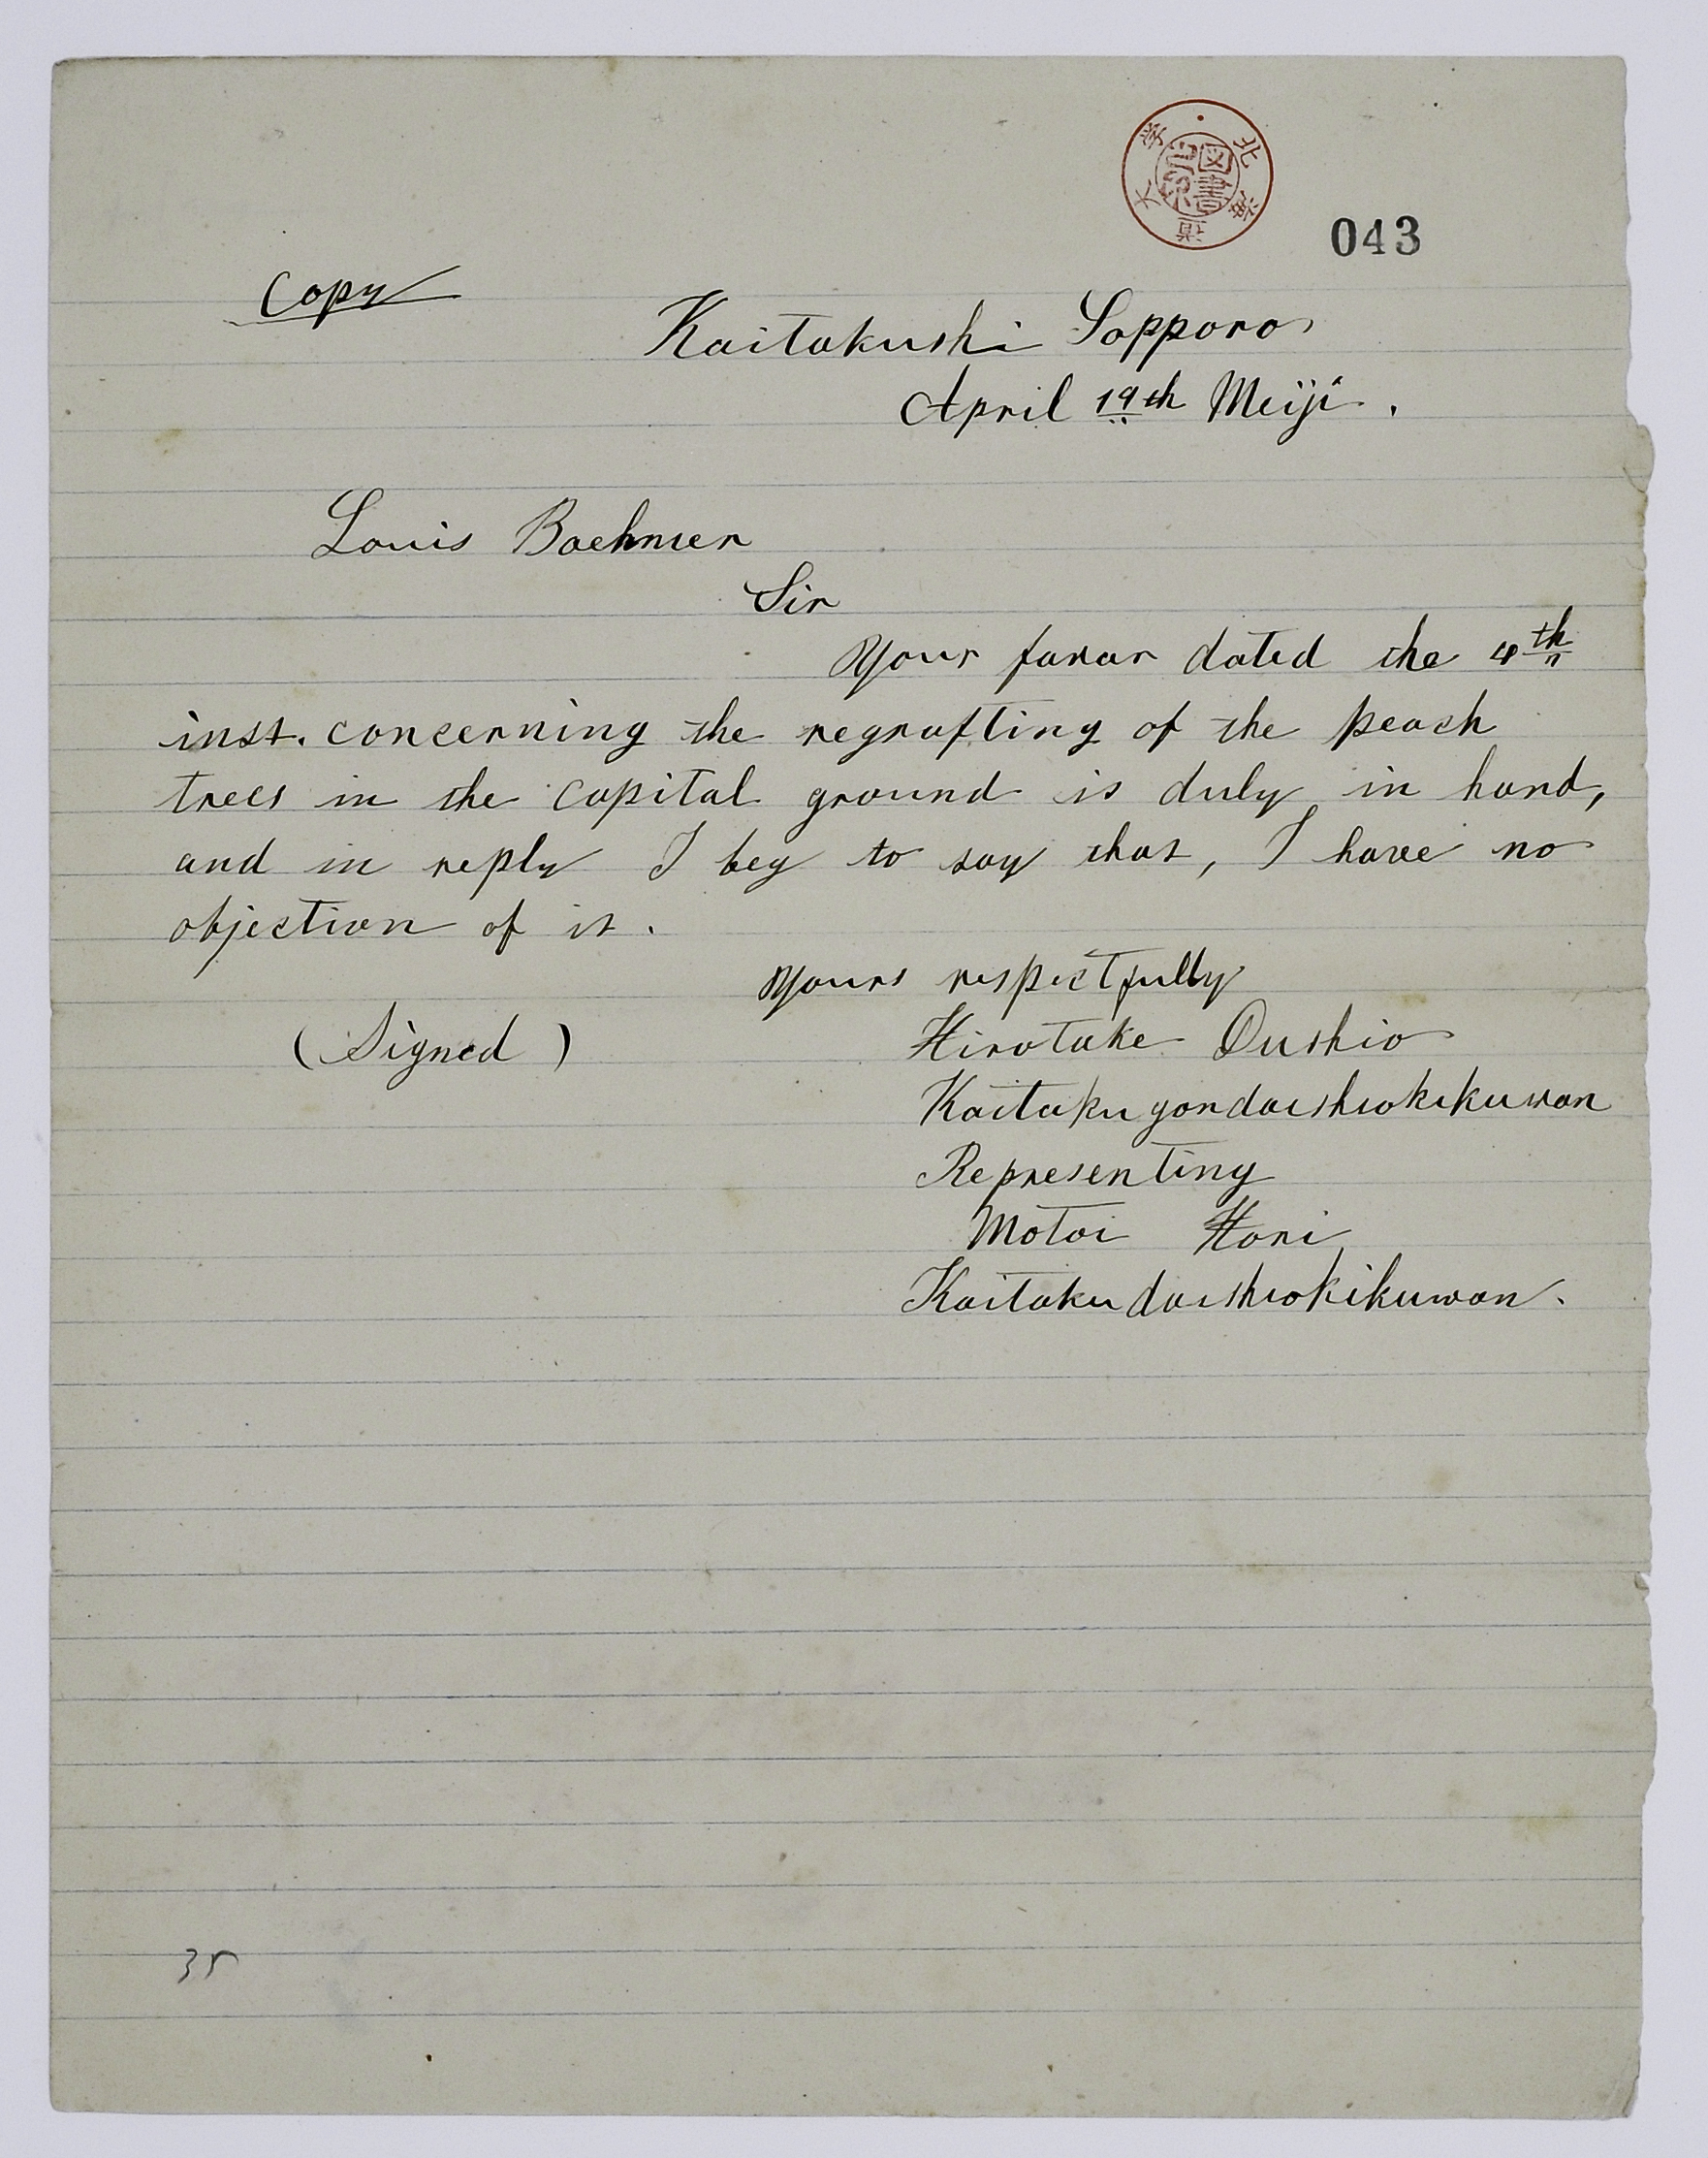 北海道大学
図書
043
Copy
Kaitakushi Sapporo
April 19th Meiji.
Louis Boehmer
Sir
Your favor dated the 4th
inst. concerning the regrafting of the peach
trees in the capital ground is duly in hand,
and in reply I beg to say that, I have no
objection of it.
Yours respectfully
(Signed)
Hirotake Dushio
Kaitakugondaishiokikuwan
Representing
Motoi Hori
Kaitakudaishiokikuwan.
35